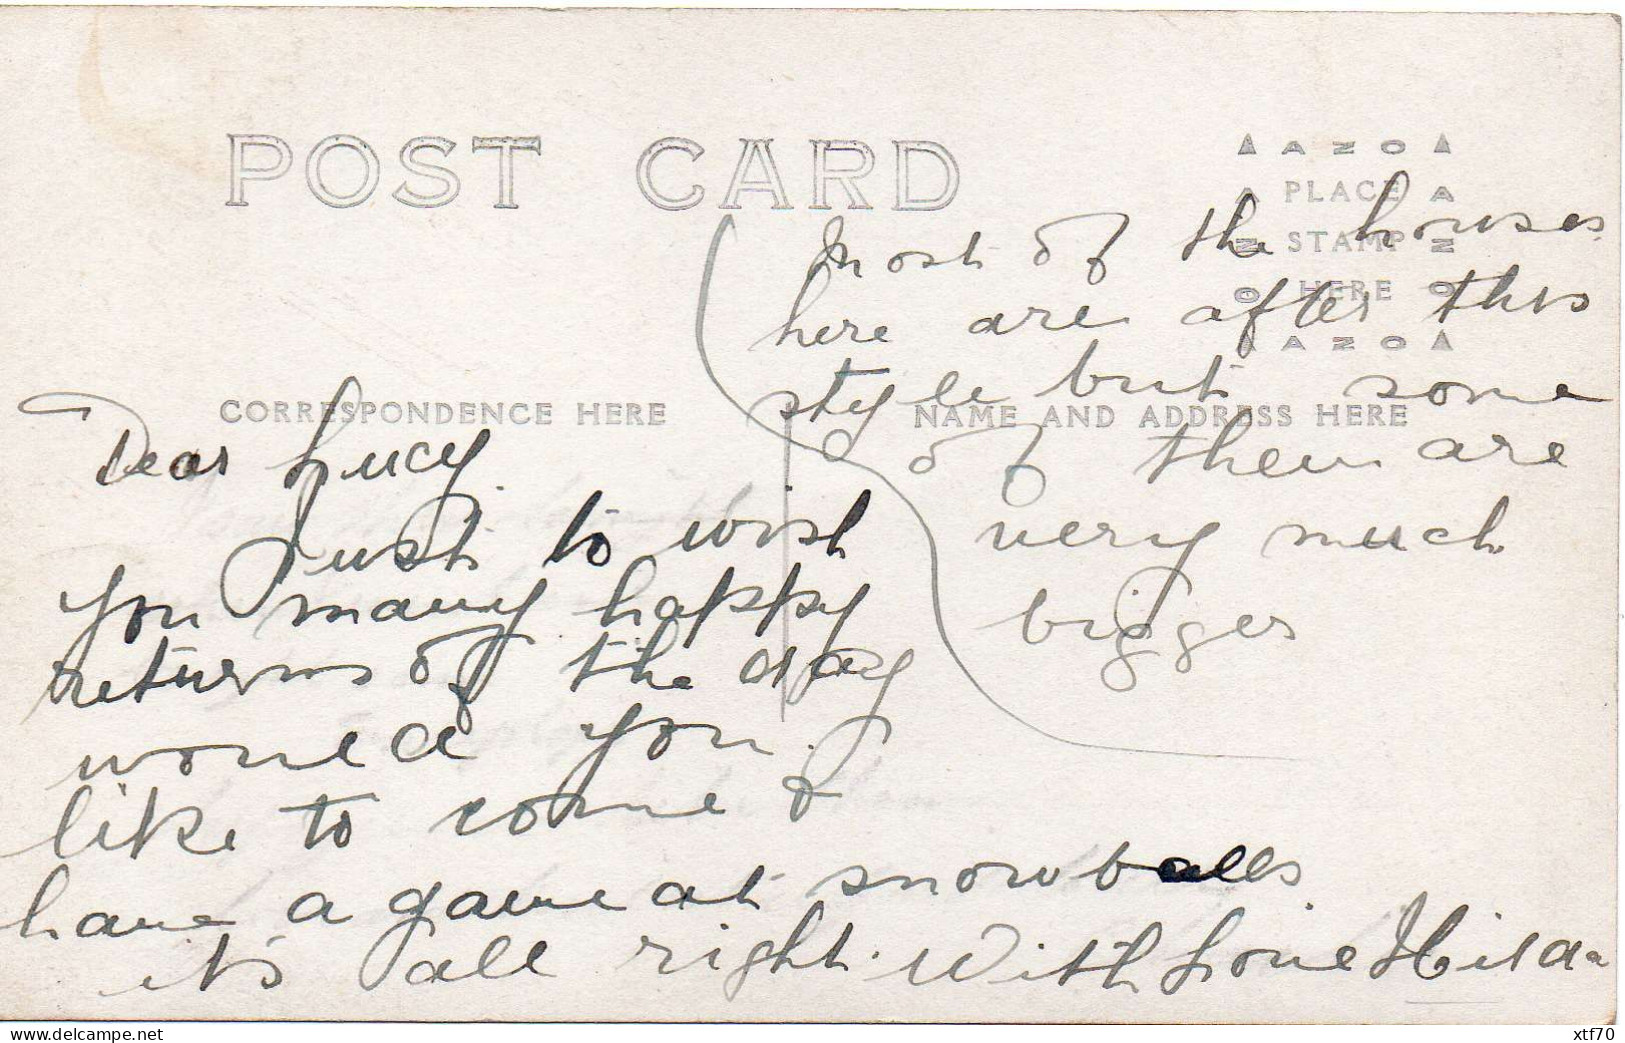 POST CARD
AZO
PLACE
STAMP
HERE
AZO
CORRESPONDENCE HERE
NAME AND ADDRESS HERE
Dear Lucy
Just to wish
you many happy
returns of the day
would you
like to come &
have a game at snowballs
it's all right. With Love Hilda
Most of the houses
here are after this
style but some
of them are
very much
bigger
www.delcampe.net
xtf70